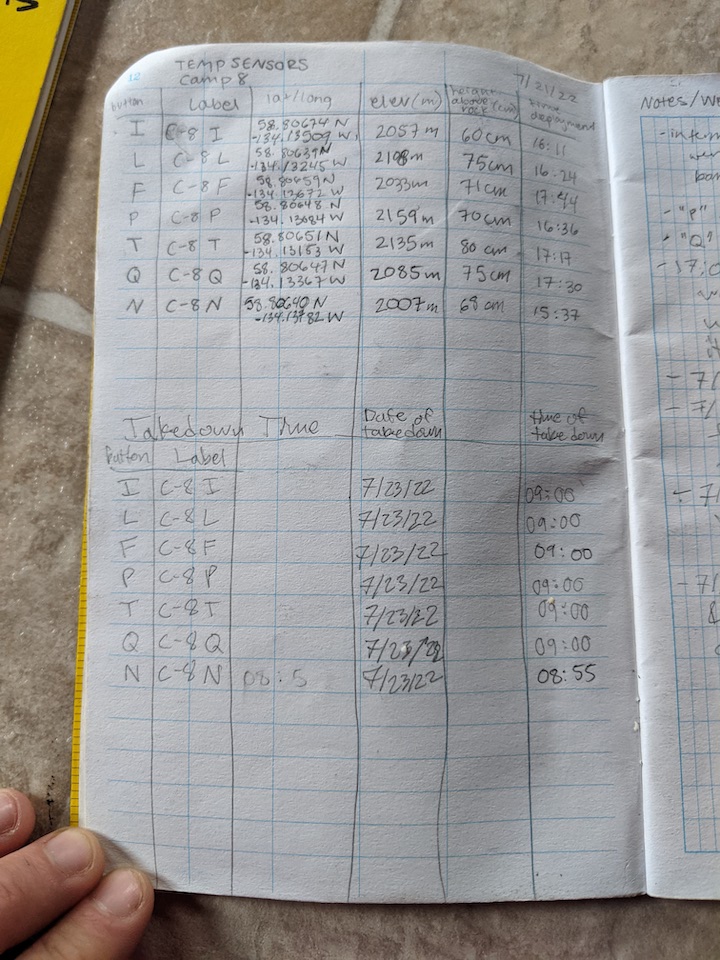 12
TEMP SENSORS
Camp 8
7/21/22
button Label lat/long elev(m) height above rock (cm) time deployment
I C-8 I 58.80674 N -134.13509 W 2057m 60cm 16:11
L C-8 L 58.80639N -134.13245 W 2108m 75cm 16:24
F C-8 F 58.80659N -134.13672 W 2033m 71cm 17:44
P C-8 P 58.80648 N -134.13084 W 2159m 70cm 16:36
T C-8 T 58.80651N -134.13153 W 2135m 80 cm 17:17
Q C-8 Q 58.80647N -134.13367 W 2085m 75cm 17:30
N C-8 N 58.80640 N -134.13782 W 2007m 68 cm 15:37
Takedown Time Date of takedown time of takedown
button Label
I C-8 I 7/23/22 09:00
L C-8 L 7/23/22 09:00
F C-8 F 7/23/22 09:00
P C-8 P 7/23/22 09:00
T C-8 T 7/23/22 09:00
Q C-8 Q 7/23/22 09:00
N C-8 N 08:5 7/23/22 08:55
Notes/
- "P"
- "Q"
- 17:0
- 7/
- 7/
- 7/
- 7/